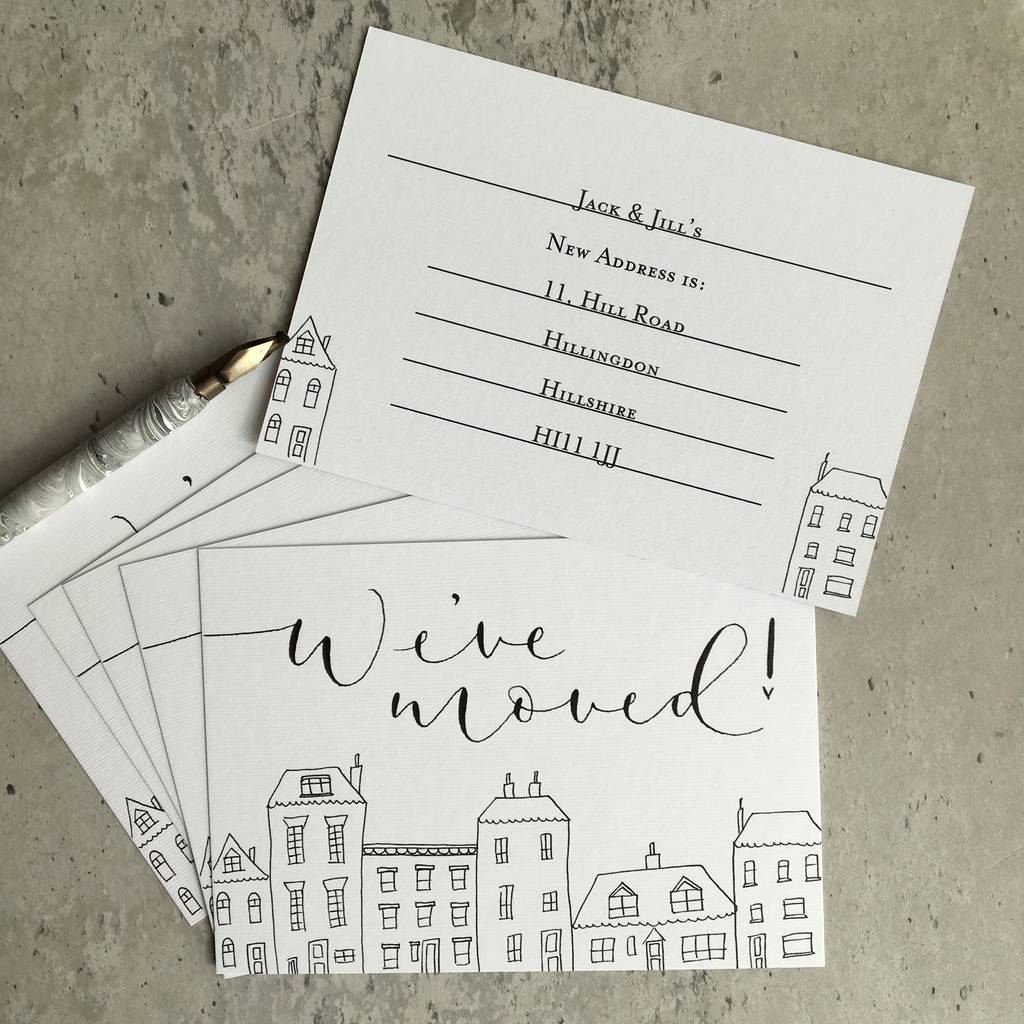 Jack & Jill's
New Address is:
11, Hill Road
Hillingdon
Hillshire
HI11 1JJ
We've
moved!